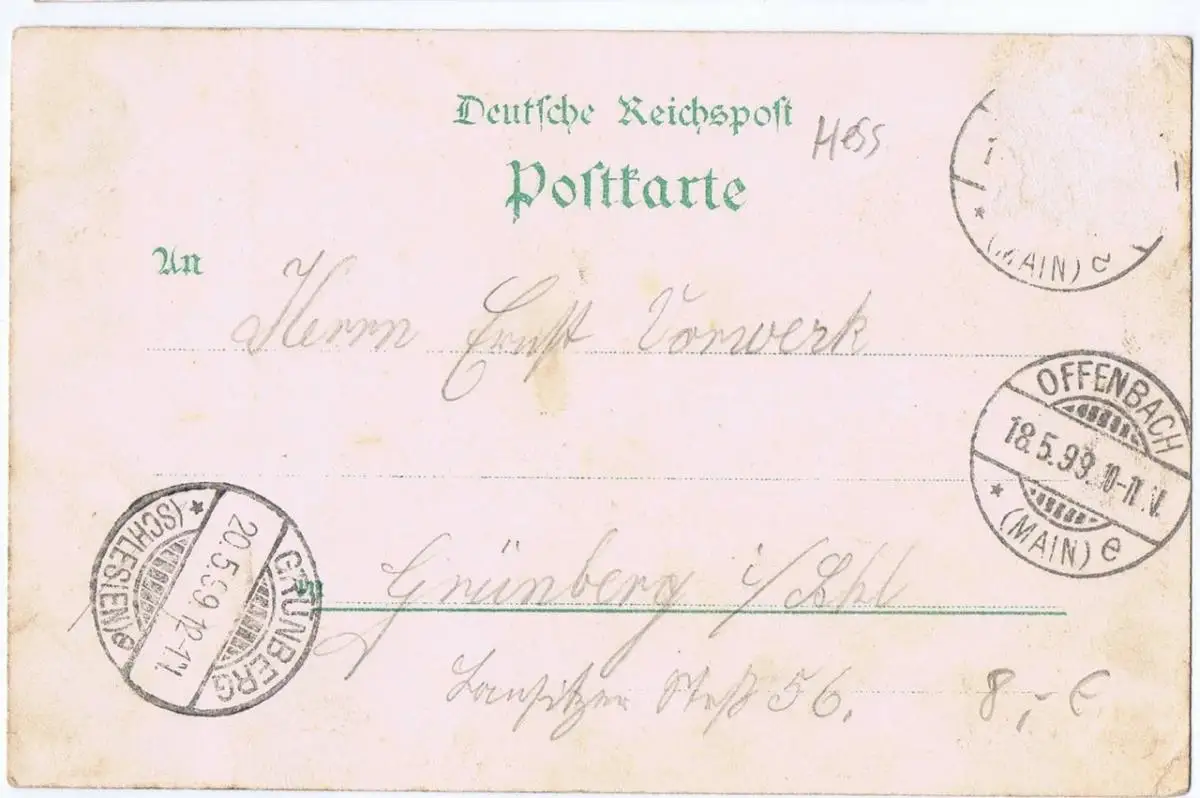 Deutsche Reichspost
Hess
Postkarte
An
Herrn Ernst Vorwerk
(MAIN) e
OFFENBACH
18.5.99. 10-11 V.
* (MAIN) e
GRÜNBERG
20.5.99. 12-1N
* (SCHLESIEN) e
in Grünberg i/Schl
Lansitzer Straß 56.
8,- €